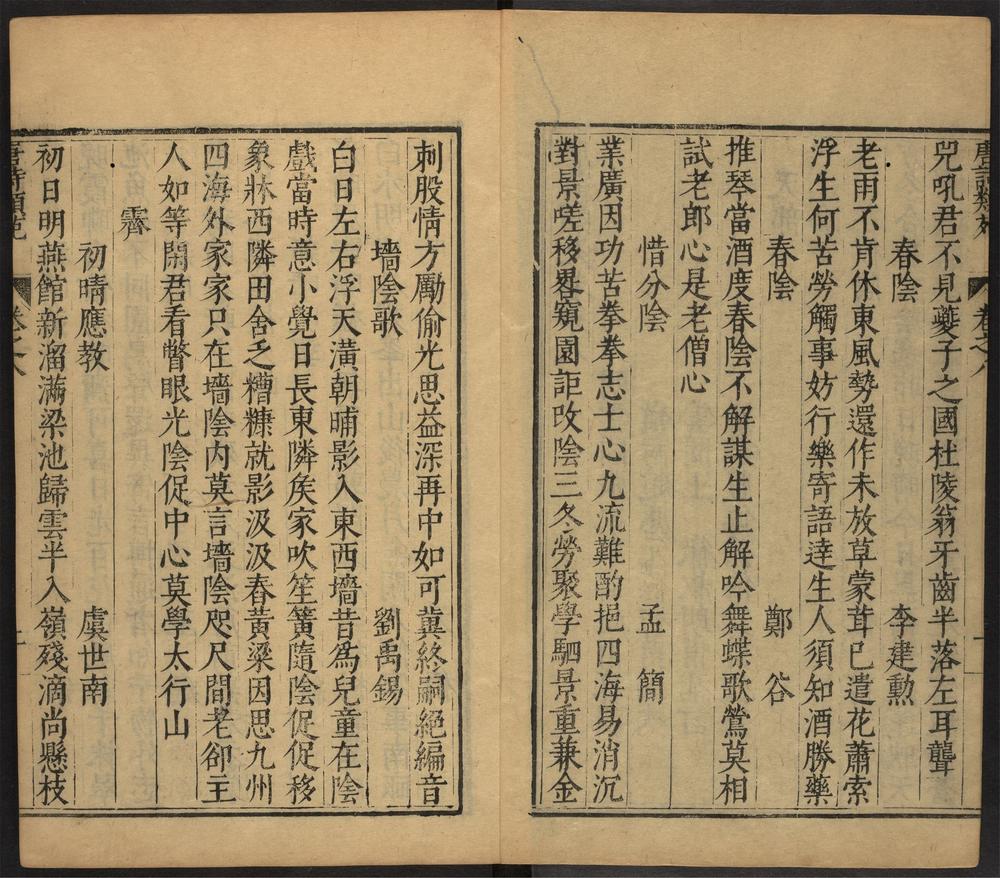 唐詩類苑 卷之八
兕吼君不見夔子之國杜陵翁牙齒半落左耳聾
春陰 李建勳
老雨不肯休東風勢還作未放草蒙茸已遣花蕭索
浮生何苦勞觸事妨行樂寄語達生人須知酒勝藥
春陰 鄭谷
推琴當酒度春陰不解謀生止解吟舞蝶歌鶯莫相
試老郎心是老僧心
惜分陰 孟簡
業廣因功苦拳拳志士心九流難酌挹四海易消沉
對景嗟移晷窺園詎改陰三冬勞聚學駟景重兼金
刺股情方勵偷光思益深再中如可冀終嗣絕編音
墻陰歌 劉禹錫
白日左右浮天潢朝晡影入東西墻昔為兒童在陰
戲當時意小覺日長東隣矦家吹笙簧隨陰促促移
象牀西隣田舍乏糟糠就影汲汲舂黃粱因思九州
四海外家家只在墻陰內莫言墻陰咫尺間老卻主
人如等閒君看瞥眼光陰促中心莫學太行山
霽
初晴應教 虞世南
初日明燕館新溜滿梁池歸雲半入嶺殘滴尚懸枝
唐詩類苑 卷之八 二